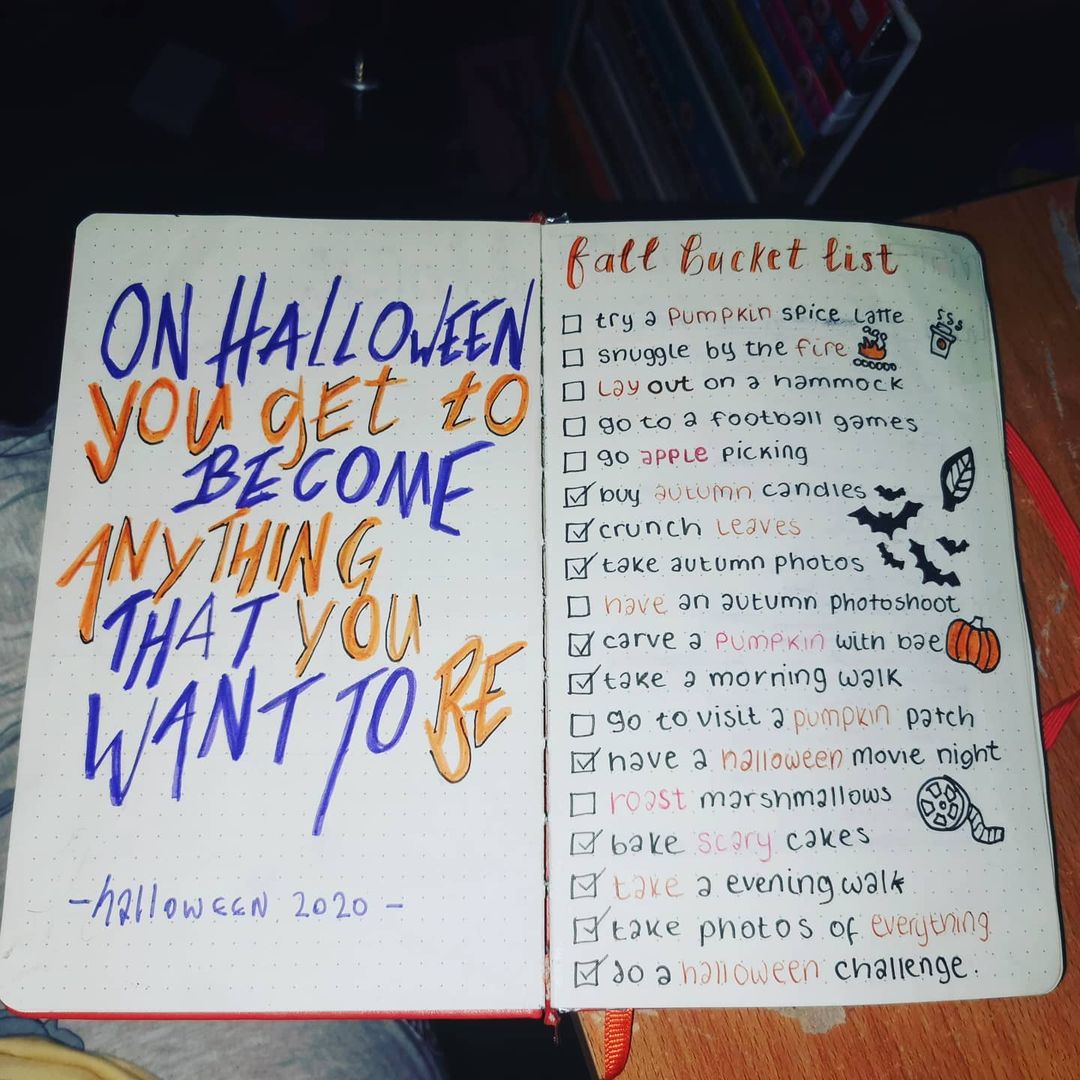 ON HALLOWEEN
YOU GET TO
BECOME
ANYTHING
THAT YOU
WANT TO BE
- halloween 2020 -
fall bucket list
try a pumpkin spice latte
snuggle by the fire
lay out on a hammock
go to a football games
go apple picking
buy autumn candles
crunch leaves
take autumn photos
have an autumn photoshoot
carve a pumpkin with bae
take a morning walk
go to visit a pumpkin patch
have a halloween movie night
roast marshmallows
bake scary cakes
take a evening walk
take photos of everything
do a halloween challenge.